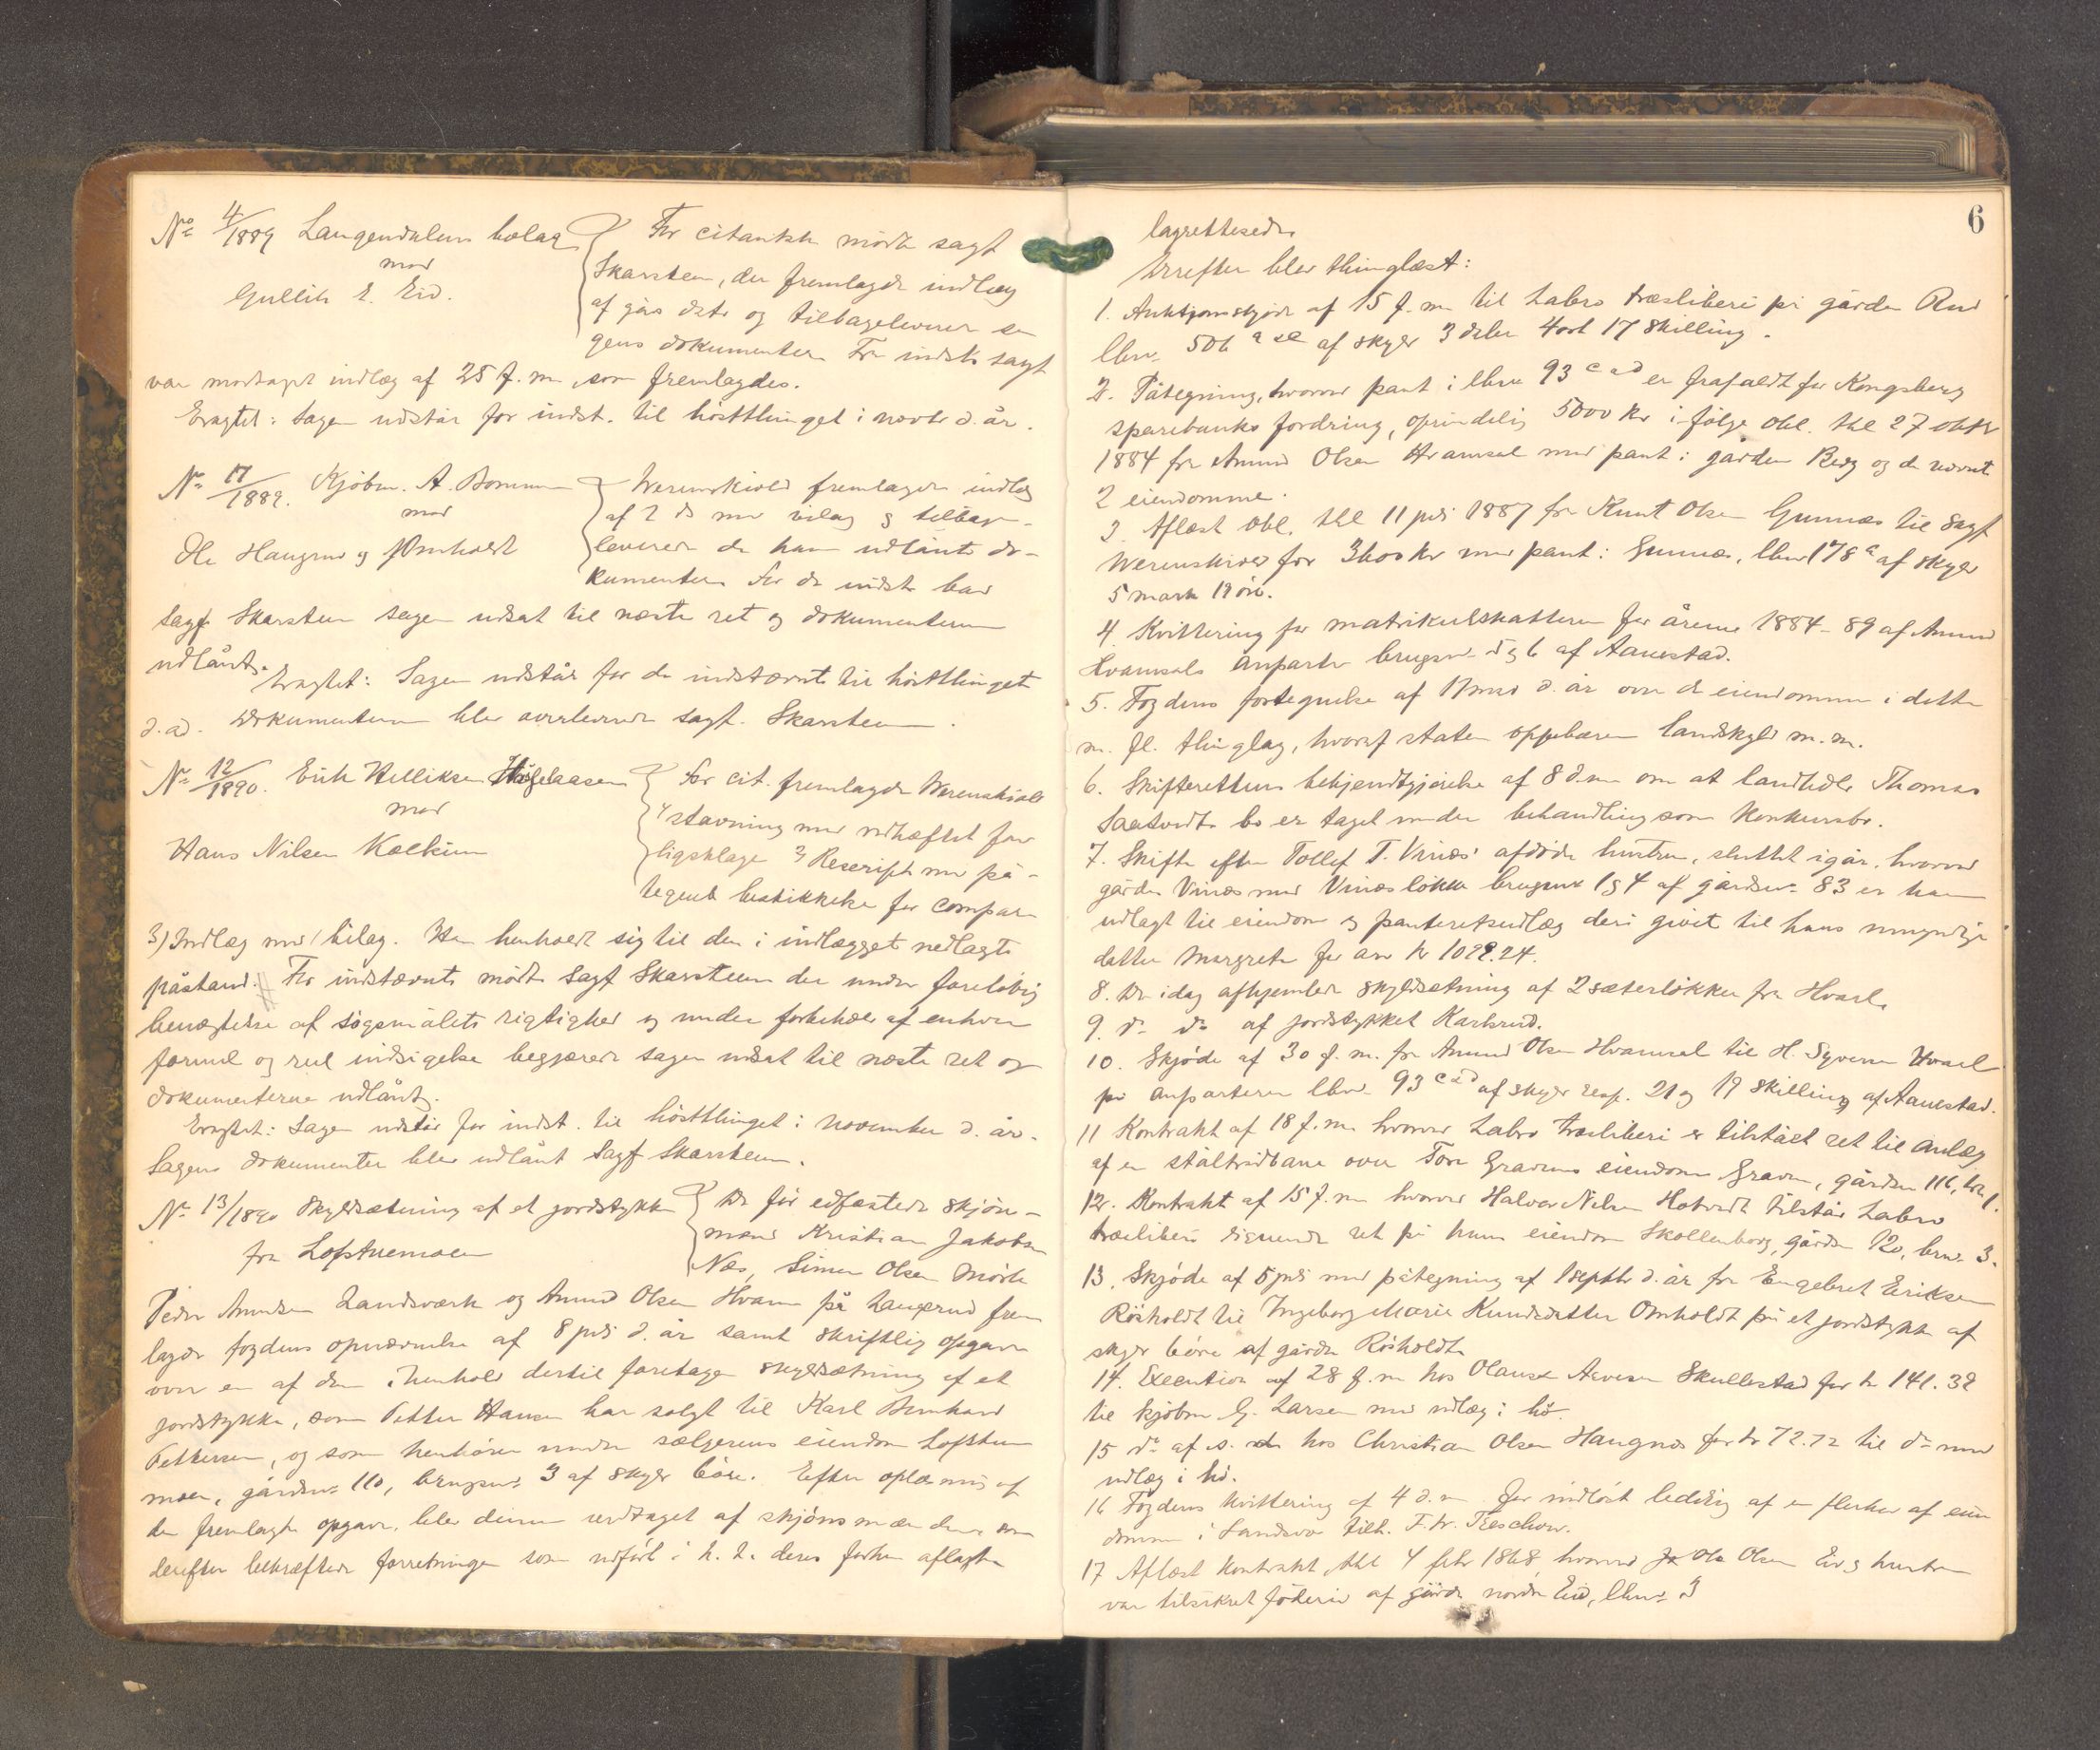 No 4/1889 Langendalens bolag
mod
Gullik E. Eid.
For citantsk mødte sagf
Skarsteen, der fremlagde indlæg
af gårs dato og tilbageleverede sa
gens dokumenter. For indsts sagf
var modtaget indlæg af 25 f. m. som fremlagdes.
Eragtet: Sagen udstår for indst. til høstthinget i novbr d. år.
No 17/1889. Kjøbm. A. Bomm
mod
Ole Haugmo og J Omholdt
Werenskiold fremlagde indlæg
af 2 ds med bilag og tilbage-
leverede de ham udlånte do-
kumenter. For de indste bad
sagf Skarsteen sagen udsat til næste ret og dokumenterne
udlånt.
Eragtet: Sagen udstår for de indstævnte til høstthinget
d. a. Dokumenterne blev overleveret sagf. Skarsteen.
No 12/1890. Erik Helliksen Høgaasen
mod
Hans Nilsen Kolkinn
For cit. fremlagde Werenskiold
1 stævning med vedhæftet for
ligsklage 2 Rescript med på-
tegnet beskikkelse for compar.
3) Indlæg med 1 bilag. Han henholdt sig til den i indlægget nedlagte
påstand. For indstævnte mødte Sagf Skarsteen der under foreløbig
benægtelse af søgsmålets rigtighed og under forbehold af enhver
formel og reel indsigelse begjærede sagen udsat til næste ret og
dokumenterne udlånt.
Eragtet: Sagen udstår for indst. til høstthinget i november d. år.
Sagens dokumenter blev udlånt Sagf Skarsteen.
No 13/1890 Skyldsætning af et jordstykke
fra Lofstuemoen
De før edfæstede skjøns-
mænd Kristian Jakobsen
Næs, Simen Olsen Mørk
Peder Amundsen Landsværk og Amund Olsen Hvam på Langerud frem
lagde fogdens opnævnelse af 8 juli d. år samt skriftlig opgave
over en af dem i henhold dertil foretagen skyldsætning af et
jordstykke, som Petter Hansen har solgt til Karl Bernhard
Pettersen, og som henhører under sælgerens eiendom Lofstue
moen, gårdsno 110, brugsno 3 af skyld 6 øre. Efter oplæsning af
den fremlagte opgave, blev denne vedtaget af skjønsmændene som
derefter bekræftede forretningen som udført i h. t. deres forhen aflagte
6
lagretteseder.
Derefter blev thinglæst:
1. Auktionsskjøde af 15 f. m. til Labro træsliberi på gården Rud
lbno 506 a se af skyld 3 daler 4 ort 17 skilling.
2. Påtegning, hvorved pant i lbno 93 c a d er frafaldt for Kongsberg
sparebanks fordring, oprindelig 5000 kr i følge obl. thl 27 oktbr
1884 fra Amund Olsen Hvamsal med pant i gården Berg og de nævnte
2 eiendomme.
3. Aflæst obl. thl 11 juli 1887 fra Knut Olsen Gunnæs til Sagf
Werenskiold for 3600 kr med pant i Gunnæs, lbno 178 a af skyld
5 mark 19 øre.
4. Kvittering for matrikulskatten for årene 1884-89 af Amund
Hvamsals anparter brugsno 5 og 6 af Aanestad.
5. Fogdens fortegnelse af 17 mai d. år over de eiendomme i dette
m. fl. thinglag, hvoraf staten oppebærer landskyld m. m.
6. Skifterettens bekjendtgjørelse af 8 d. m om at landhdlr Thomas
Saatvedts bo er taget under behandling som konkursbo.
7. Skifte efter Tollef T. Vinæs' afdøde hustru, sluttet igår, hvorved
gården Vinæs med Vinæsløkka brugsno 1 og 4 af gårdsno 83 er ham
udlagt til eiendom og panteretsudlæg deri givet til hans umyndige
datter Margrete for arv kr 1022.24.
8. De idag afhjemlede skyldsætning af 2 sæterløkker fra Hvael.
9. do do af jordstykket Karlsrud.
10. Skjøde af 30 f. m. fra Amund Olsen Hvamsal til H. Syversen Hvael
på anparterne lbno 93 c a d af skyld resp. 21 og 19 skilling af Aanestad.
11 Kontrakt af 18 f. m. hvorved Labro træsliberi er tilstået ret til anlæg
af en ståltrådbane over Tore Gravens eiendom Graven, gårdsno 116, bno 1.
12. Kontrakt af 15 f. m hvorved Halvor Nilsen Hotvedt tilstår Labro
træsliberi lignende ret på hans eiendom Skollenborg, gårdsno 120, brno 3.
13. Skjøde af 5 juli med påtegning af 1 septbr d. år fra Engebret Eriksen
Røsholdt til Ingeborg Marie Knudsdatter Omholdt på et jordstykke af
skyld 6 øre af gården Røsholdt.
14. Execution af 28 f. m hos Olaus Aavesen Skullestad for kr 141.32
til kjøbm G. Larsen med udlæg i hø.
15 do af s. d. hos Christian Olsen Haugnæs for kr 72.72 til do med
udlæg i hø.
16 Fogdens kvittering af 4 d. m for indløst ledding af en flerhed af eien
domme i Sandsvær tilh. F. W. Treschow.
17 Aflæst kontrakt, thl 4 febr 1868, hvorved Ole Olsen Eid og hustru
var tilsikret føderåd af gården nordre Eid, lbno 3